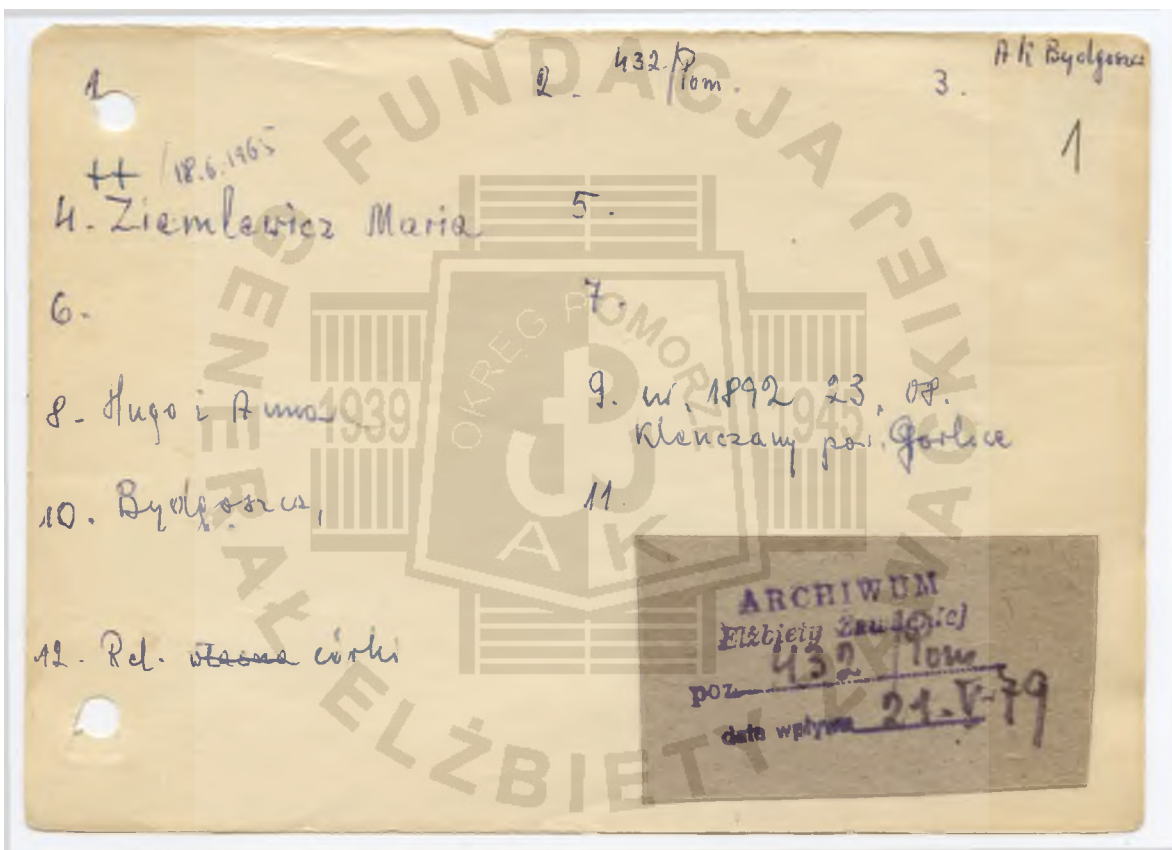 1 2. 432/Pom. 3. AK Bydgoszcz
1
++ / 18.6.1965
4. Ziemlewicz Maria 5.
6. 7.
8. Hugo i Anna 9. ur. 1892 23. 08.
Klęczany pow. Gorlice
10. Bydgoszcz, 11.
12. Rel. własna córki
ARCHIWUM
Elżbiety Zawackiej
poz. 432/Pom
data wpływu 21.V-79
FUNDACJA GENERAŁ ELŻBIETY ZAWACKIEJ
OKRĘG POMORZE
1939 1945
AK